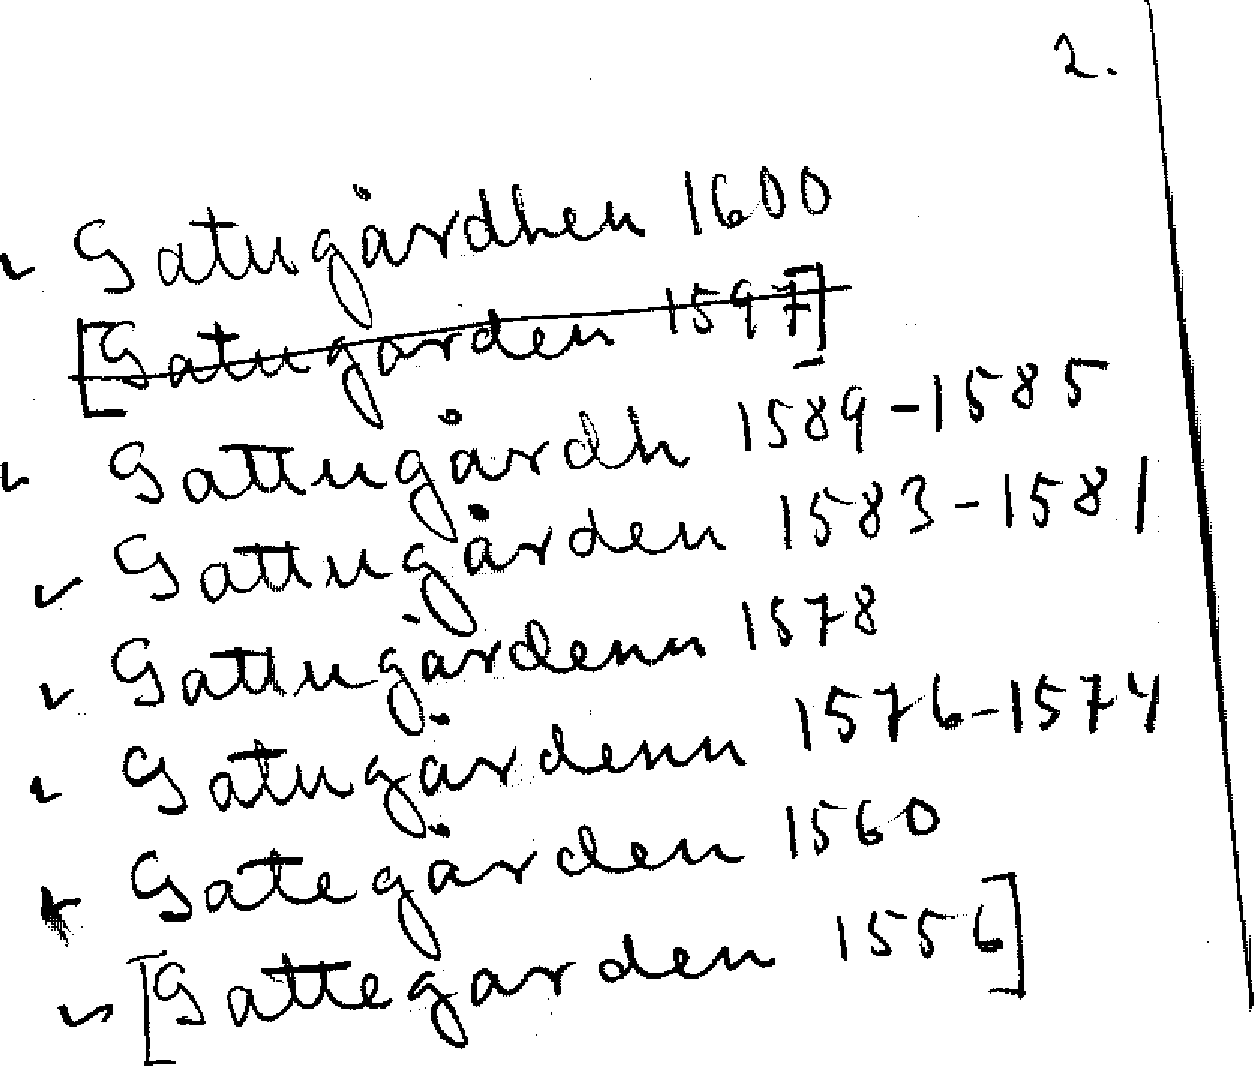 2.
Gatugårdhen 1600
[Gatugarden 1597]
Gattugårdh 1589-1585
Gattugården 1583-1581
Gattugårdenn 1578
Gatugårdenn 1576-1574
Gategården 1560
[Gattegarden 1556]